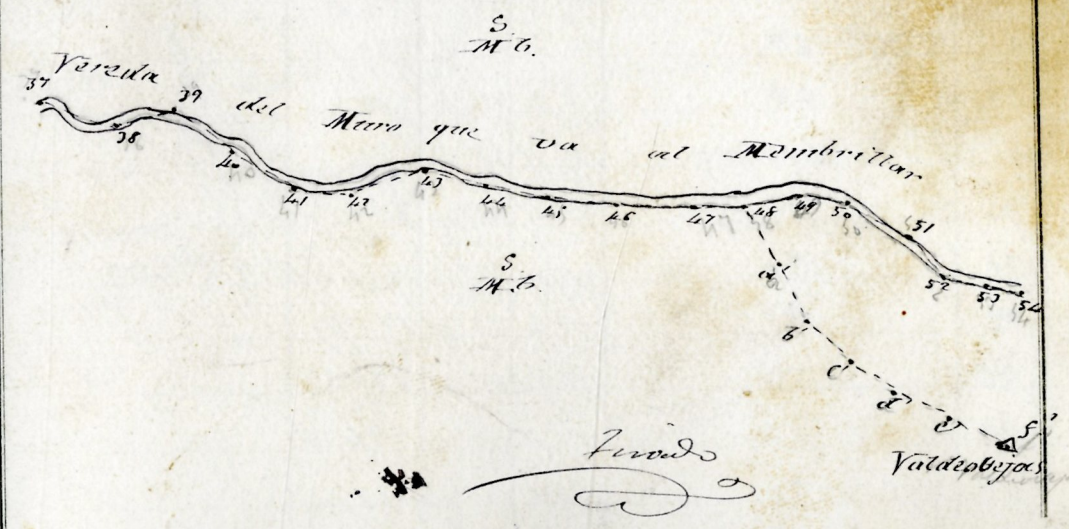 S.
M.b.
Vereda del Muro que va al Membrillar
37
38
39
40
41
42
43
44
45
46
47
48
49
50
51
52
53
54
S.
M.b.
a'
b'
c'
d'
e'
f'
Valdeobejas